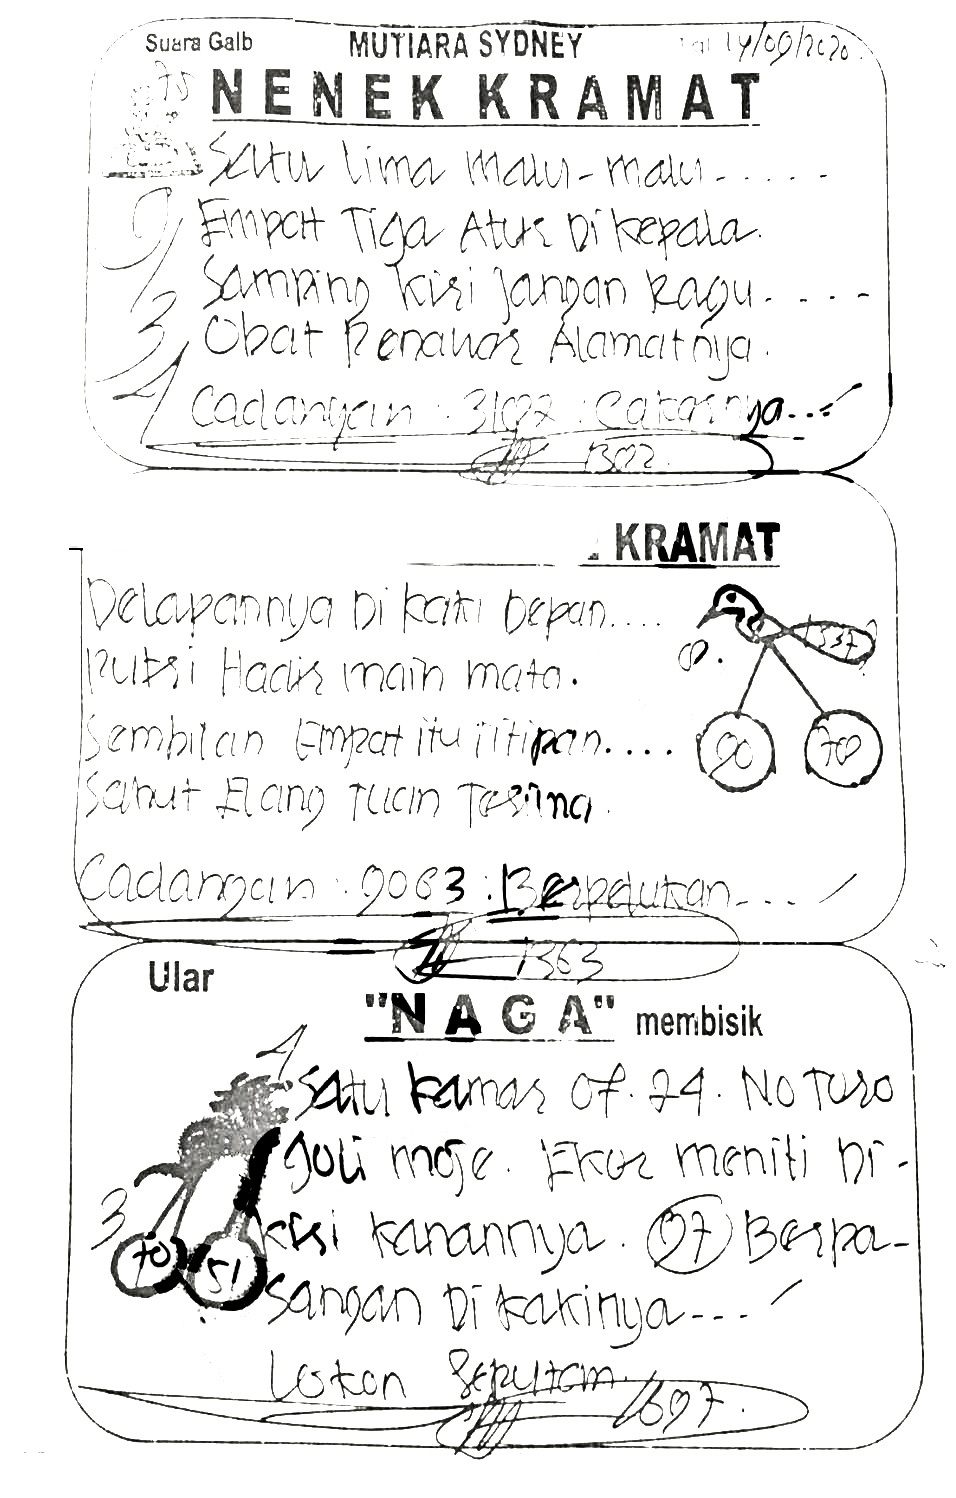 Suara Galb MUTIARA SYDNEY Tgl 14/09/2020.
75 NENEK KRAMAT
Satu Lima Malu-malu.....
Empat Tiga Atur Di kepala.
Samping kiri jangan Ragu....
Obat Penawar Alamatnya.
9
3
4
Cadangan : 3102 : Cakarnya...
1302
KRAMAT
Delapannya Di kaki Depan....
Putri Hadir main mata.
8. 1337
Sembilan Empat itu Titipan....
90 70
Sahut Elang Tuan
Cadangan : 9063 : Berpelukan...
1363
Ular
"NAGA" membisik
4
Satu kamar of. 24. No Turo
Juli moje. Ekor meniti Di-
3
kiri kanannya. 97 Berpa-
70 51
sangan Di kakinya---
Lokon Seputam.
1697.